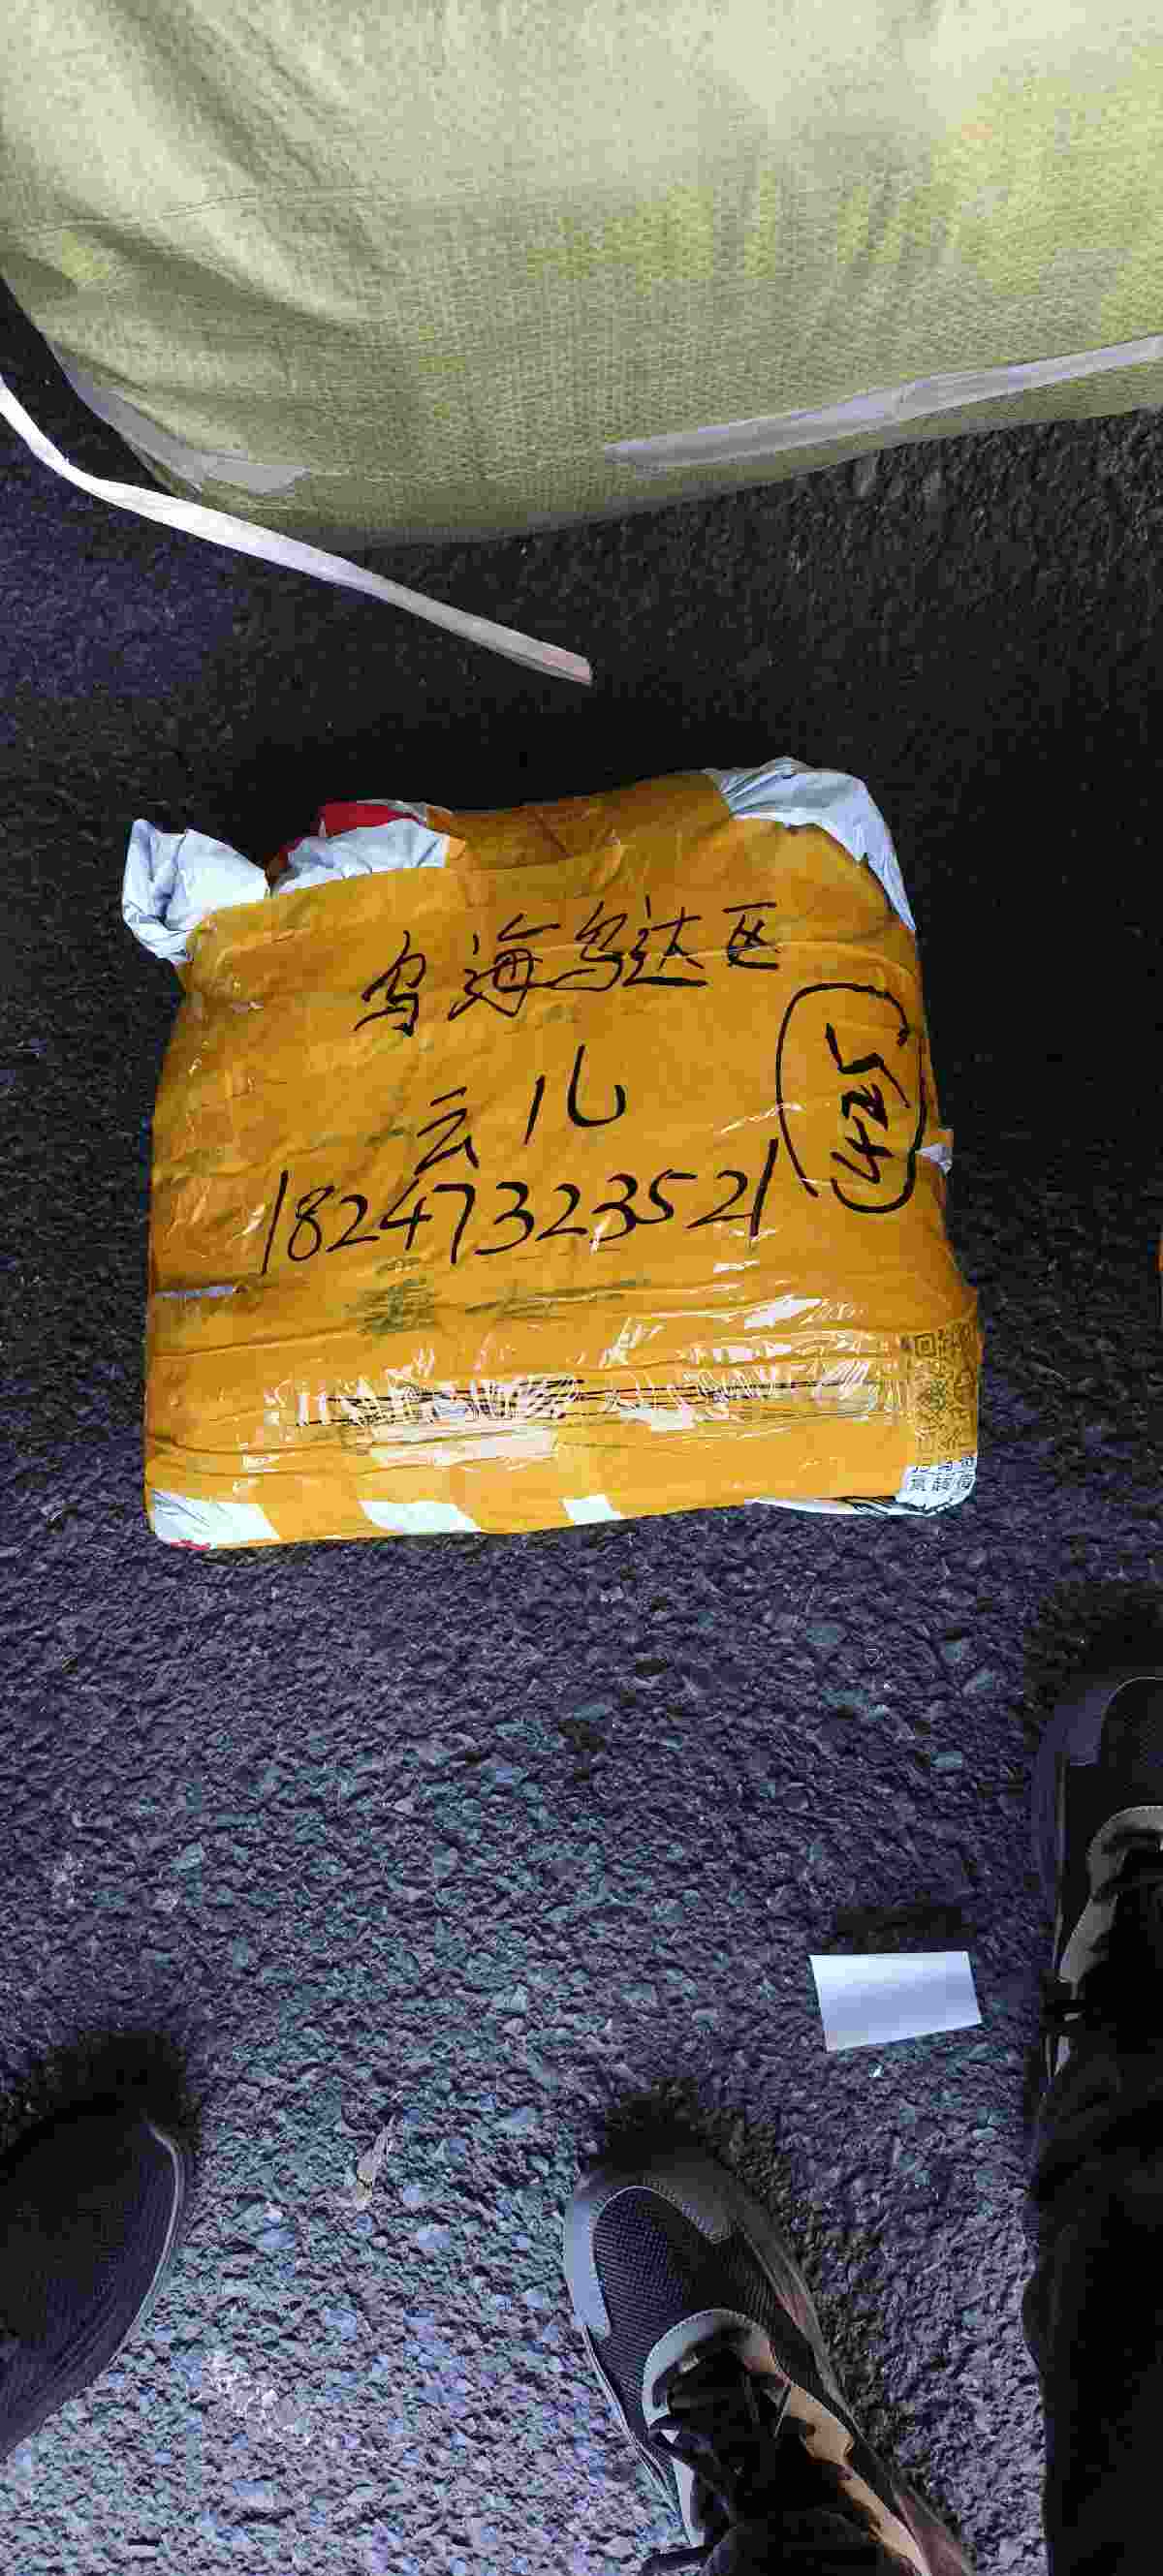 乌海乌达区
云儿
18247323521
425